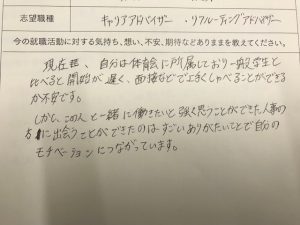 志望職種 キャリアアドバイザー ・リクルーティングアドバイザー
今の就職活動に対する気持ち、想い、不安、期待などありままを教えてください。
現在、自分は体育会に所属しており一般学生と
比べると開始が遅く、面接などで上手くしゃべることができる
か不安です。
しかし、この人と一緒に働きたいと強く思うことができた人事の
方に出会うことができたのはすごいありがたいことで自分の
モチベーションにつながっています。